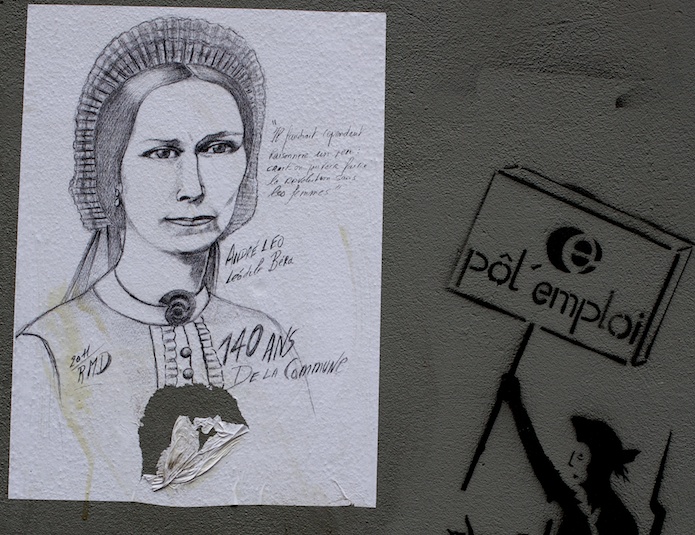 "Il faudrait cependant
raisonner un peu
la révolution sans
les femmes"
ANDRÉ LEO
Léodile Béra
140 ANS
DE LA COMMUNE
2011
RMD
e
pôl'emploi